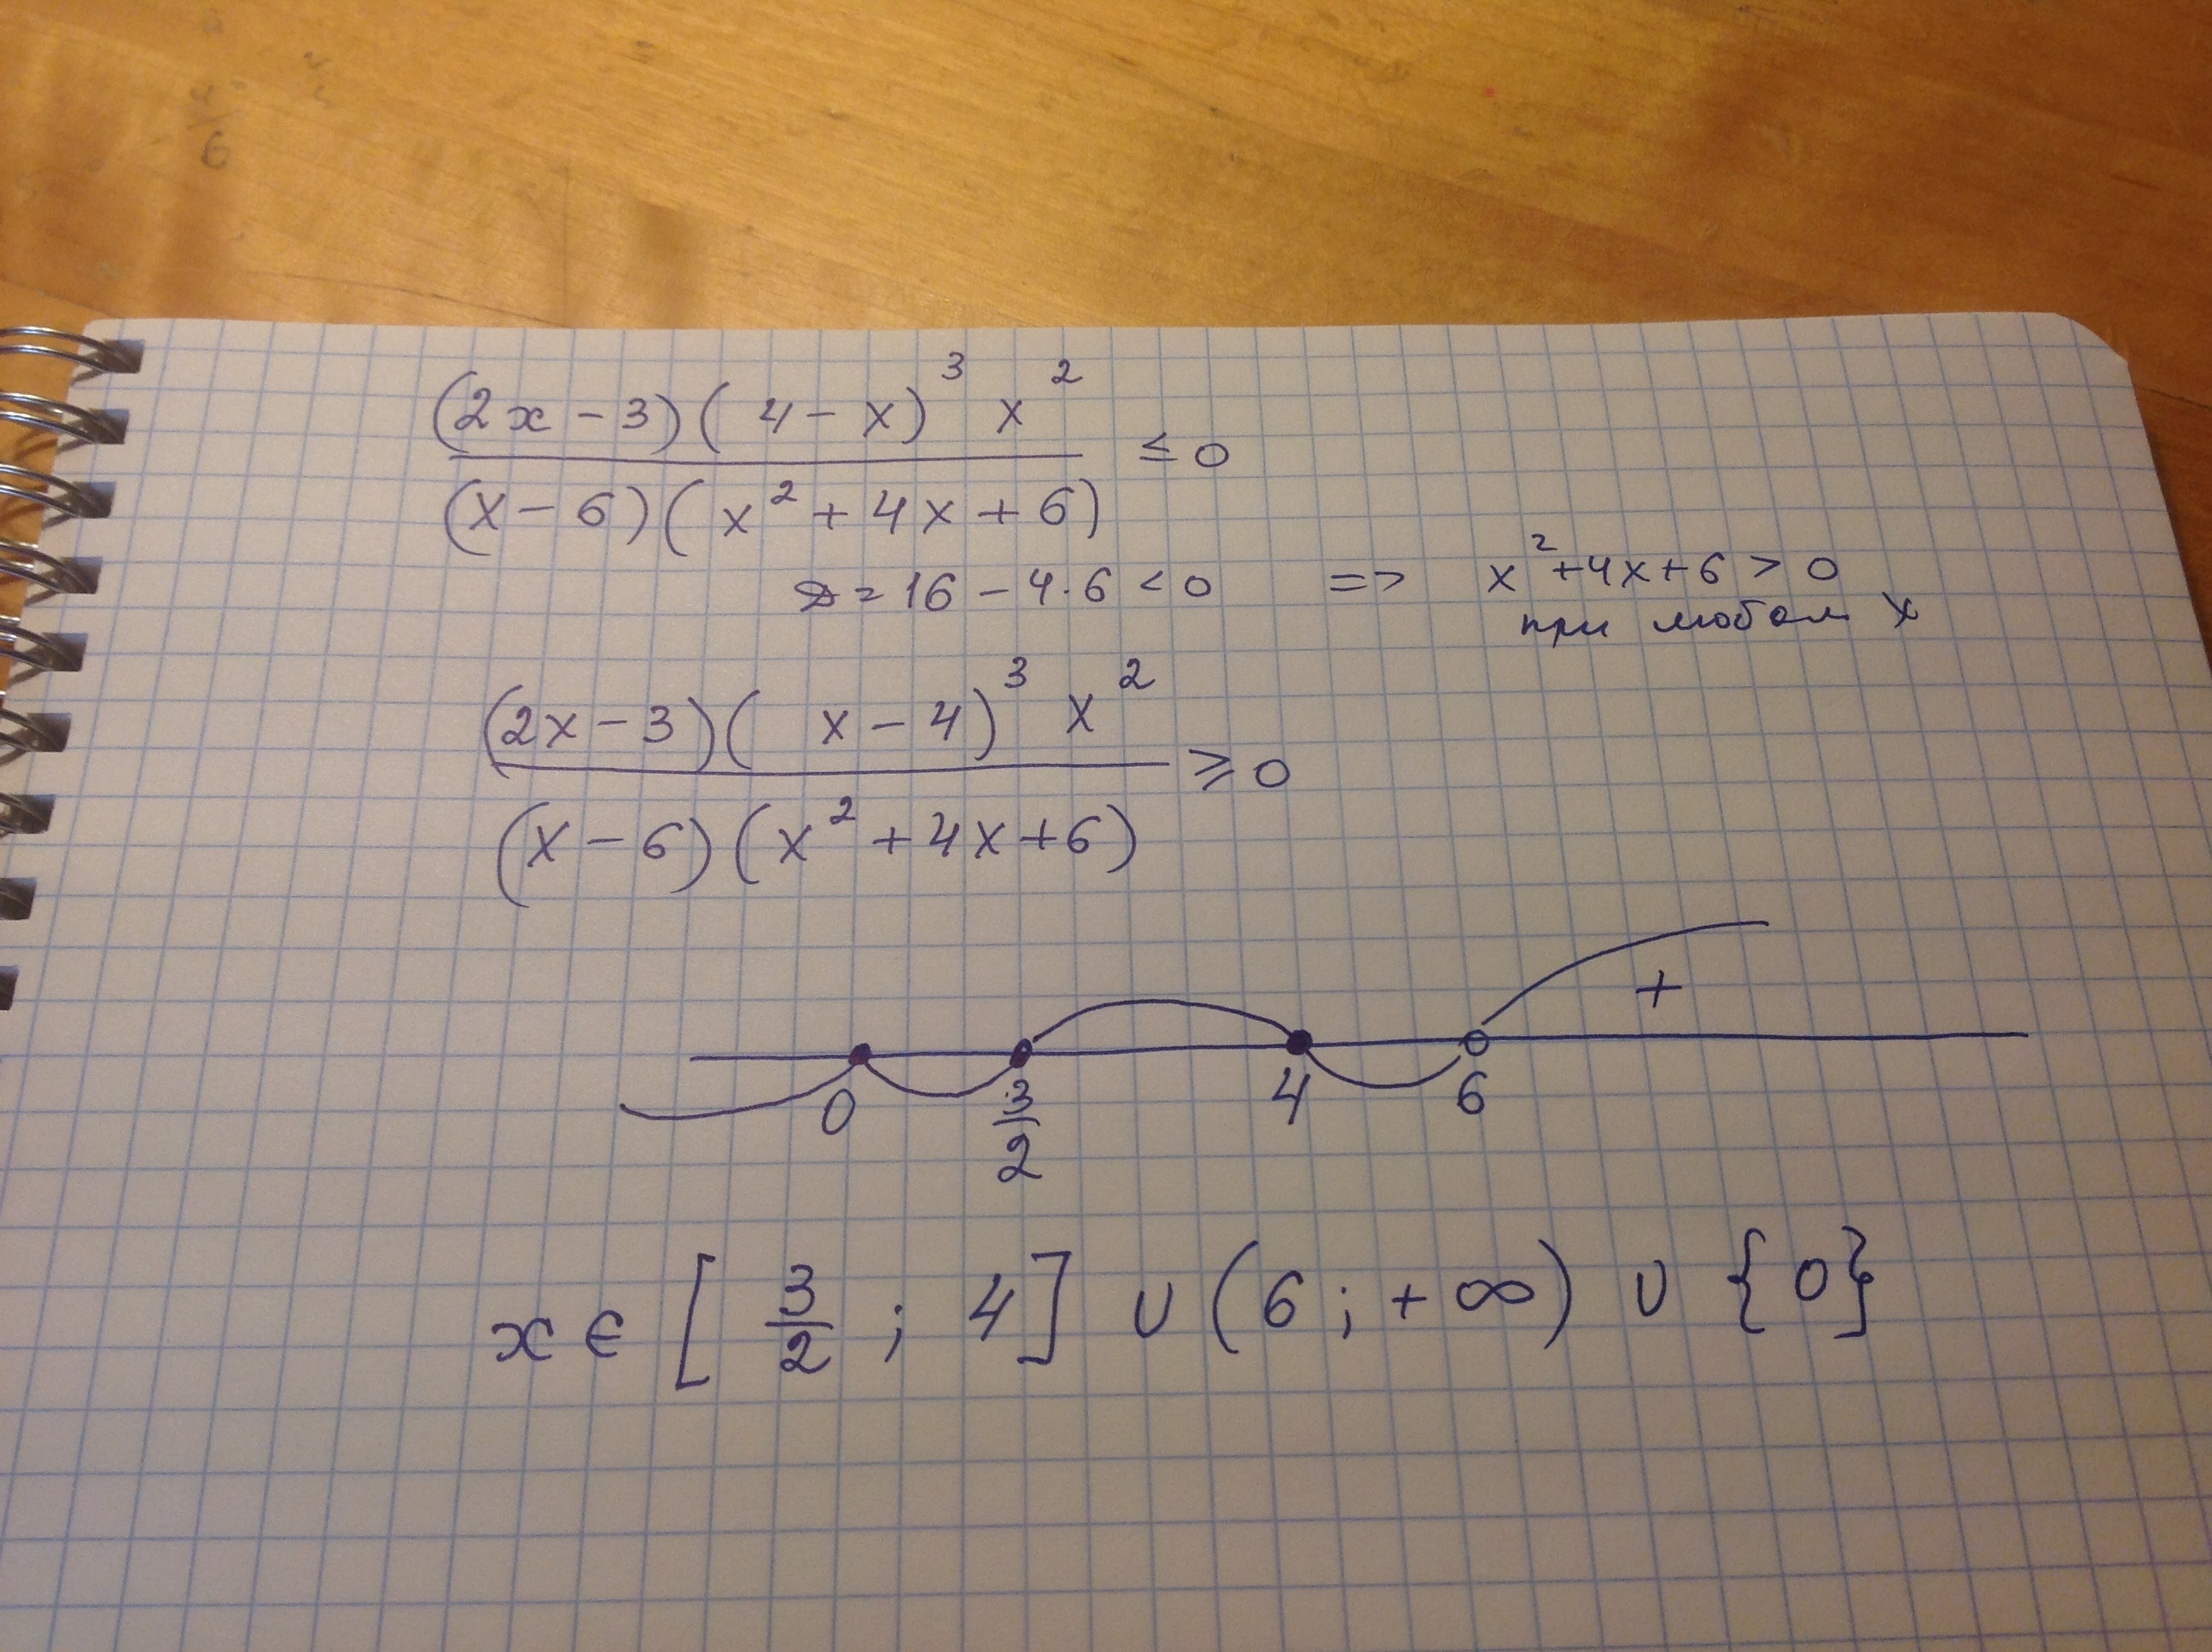 (2x − 3)(4 − x)³ x² / (x − 6)(x² + 4x + 6) ≤ 0
D = 16 − 4·6 < 0 => x² + 4x + 6 > 0
при любом x
(2x − 3)(x − 4)³ x² / (x − 6)(x² + 4x + 6) ≥ 0
+
0 3/2 4 6
x ∈ [3/2 ; 4] ∪ (6 ; +∞) ∪ {0}